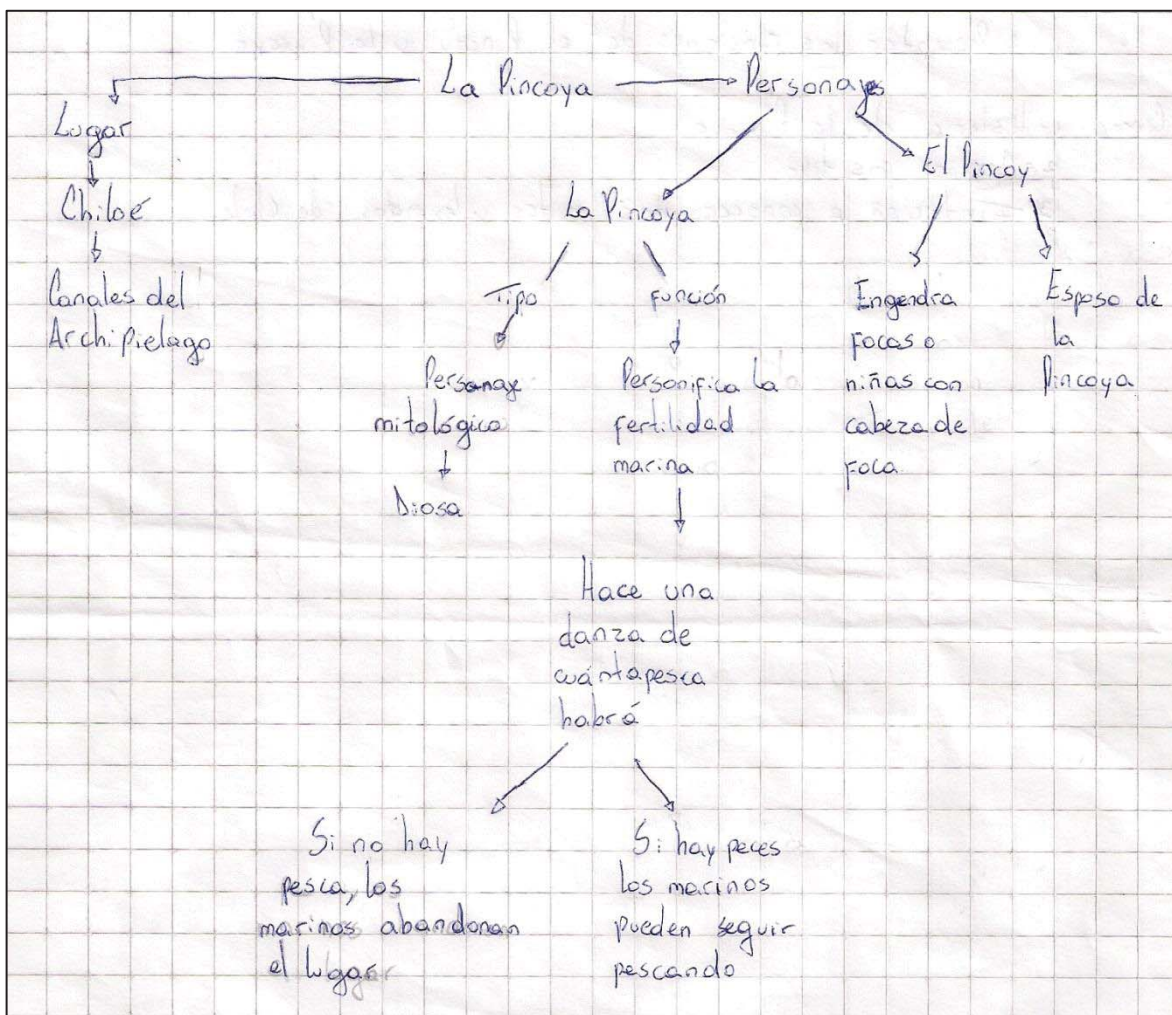 La Pincoya
Personajes
Lugar
Chiloé
Canales del
Archipielago
La Pincoya
Tipo
Personaje
mitológico
Diosa
Función
Personifica la
fertilidad
marina
Hace una
danza de
cuánta pesca
habrá
Si no hay
pesca, los
marinos abandonan
el lugar
Si hay peces
los marinos
pueden seguir
pescando
El Pincoy
Engendra
focas o
niñas con
cabeza de
foca
Esposo de
la
Pincoya